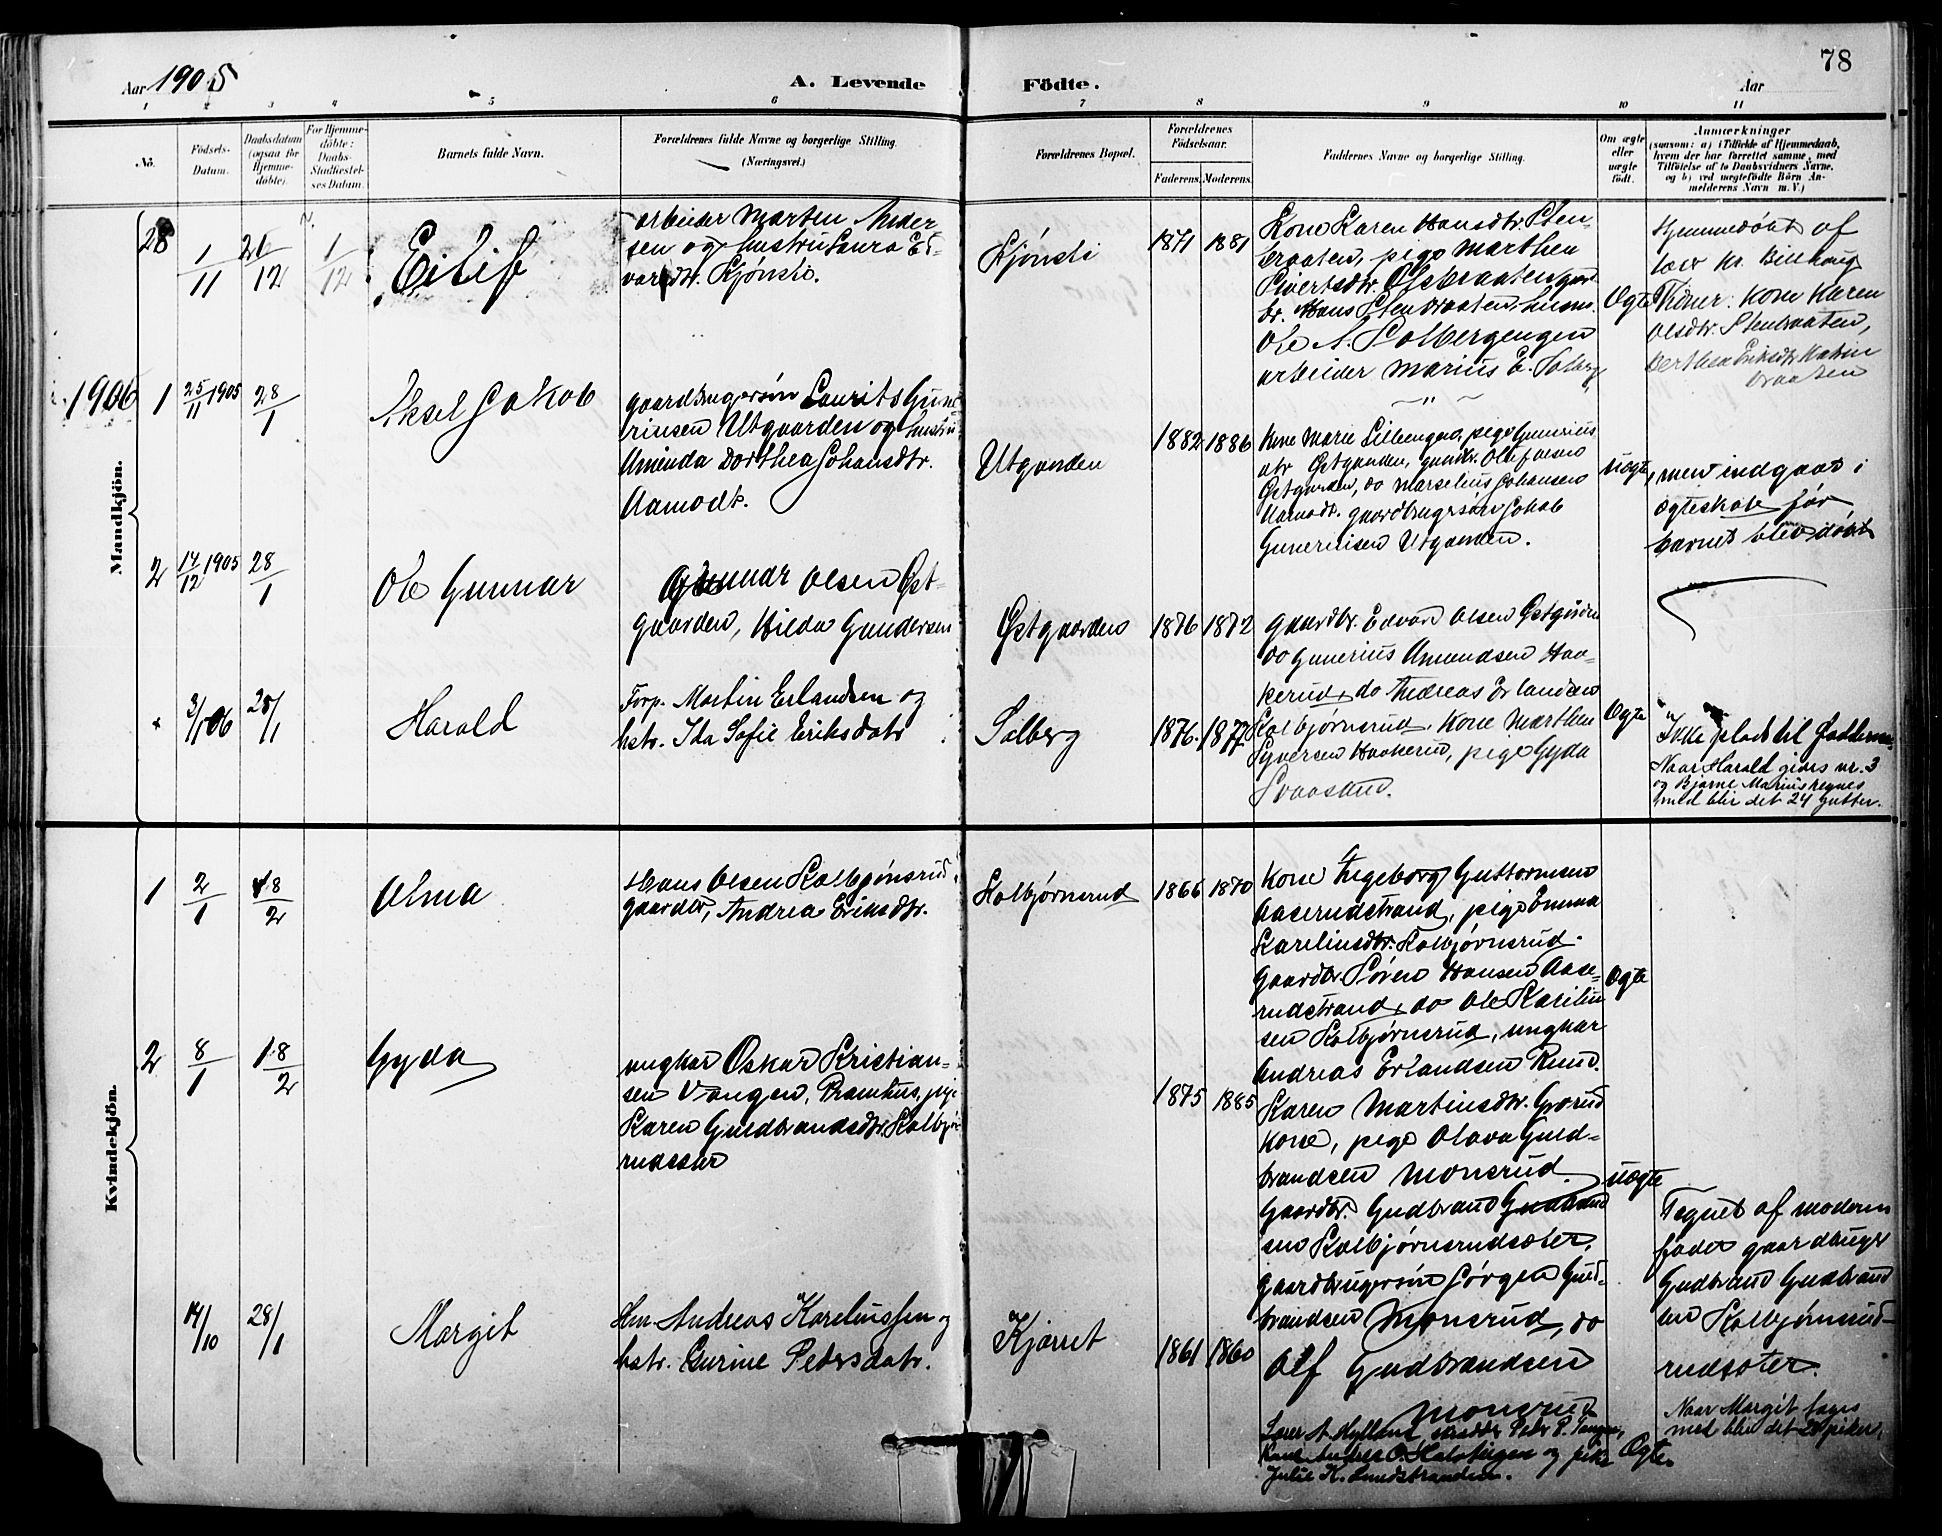 78
Aar 1905
A. Levende Fødte.
Aar
1 2 3 4 5 6 7 8 9 10 11
No.
Fødsels-Datum.
Daabsdatum (ogsaa for Hjemme-døbte).
For Hjemme-døbte: Daabs-Stadfæstel-ses Datum.
Barnets fulde Navn.
Forældrenes fulde Navne og borgerlige Stilling. (Næringsvei.)
Forældrenes Bopæl.
Forældrenes Fødselsaar.
Faderens. Moderens.
Faddernes Navne og borgerlige Stilling.
Om ægte eller uægte født.
Anmærkninger
(saasom: a) i Tilfælde af Hjemmedaab,
hvem der har forrettet samme, med
Tilføielse af to Daabsvidners Navne,
og b) ved uægtefødte Børn An-
melderens Navn m. V.)
Mandkjøn.
28 1/11 21/12 1/12
Eilif
arbeider Marten Ander
sen og hustru Laura Ed-
vardsdtr. Kjønsti.
Kjønsti
1871 1881
Kone Karen Hansdtr. Sten-
braaten, pige Marthea
Sivertsdtr. Olsbraaten, gaard
br. Hans Stenbraaten,
Ole A. Solbergengen
arbeider Marius E. Solberg
Ægte
Hjemmedøbt af
lær Kr. Billhaug
Vidner: Kone Karen
Olsdtr. Stenbraaten,
Berthea Eriksdtr.
braaten
1906
1 25/11 1905 28/1
Aksel Jakob
gaardbrugersøn Laurits Gune
riusen Utgaarden og hustru
Aminda Dorthea Johansdtr.
Aamodt.
Utgaarden
1882 1886
Kone Marie Lilleengen, pige Gunerius
dtr. Østgaarden, gaardbr. Ole
Østgaarden, do Marselius Johansen
Aamodt. gaardbrugersøn Jakob
Guneriusen Utgaarden.
uægte
, men indgaaet i
ægteskab før
barnet blev døbt
2 17/12 1905 28/1
Ole Gunnar
Gunnar Olsen Øst-
gaarden, Hilda Gundersen
Østgaarden
1876 1872
gaardbr. Edvard Olsen Østgaarden
do Gunerius Amundsen Haa-
kerud, do Andreas Erlandsen
Kolbjørnsrud, Kone Marthea
Syversen Haakerud, pige Gyda
Svaastad.
Ægte
3/1 06 28/1
Harald
Forp. Martin Erlandsen og
hstr. Ida Sofie Eriksdatr
Solberg
1876. 1877.
Ikke plads til Fadderne.
Naar Harald gives nr. 3
og Bjarne Marius regnes
med blir det 24 gutter.
Kvindekjøn.
1 2/1 18/2
Alma
Hans Olsen Kolbjønsrud,
gaardbr, Andrea Eriksdtr.
Kolbjørnsrud
1866 1870
Kone Ingeborg Guttormsen
Aaserudstrand, pige Emma
Karelinsdtr. Kolbjørnsrud.
Gaardbr. Søren Hansen Aase-
rudstrand, do Ole Karelin
sen Kolbjørnsrud, ungkar
Andreas Erlandsen Ruud.
Ægte
2 8/1 18/2
Gyda
ungkar Oskar Kristian-
sen Vangen, pige
Karen Guldbrandsdtr. Kolbjørns
rudsæter
1875 1885
Karen Martinsdtr. Grorud
kone, pige Olava Guld-
brandsen Monsrud
Gaardbr. Gudbrand Gudbrand
sen Kolbjørnsrudsæter,
gaardbrugersøn Jørgen Guld-
brandsen Monsrud, do
Olf Gudbrandsen
Monsrud
uægte
Tegnet af moderens
fader gaardbruger
Gudbrand Gudbrand
sen Kolbjørnsrud-
rudsæter.
14/10 28/1
Margit
Hm. Andreas Kareliussen og
hstr. Gurine Pedersdatr.
Kjørret
1861 1860
Lærer A. Hylland, skrædder Peder P. Tangen,
Kone Andrea O. og pike
Julie K. Sundstranden.
Ægte.
Naar Margit tages
med blir det 20 piker.